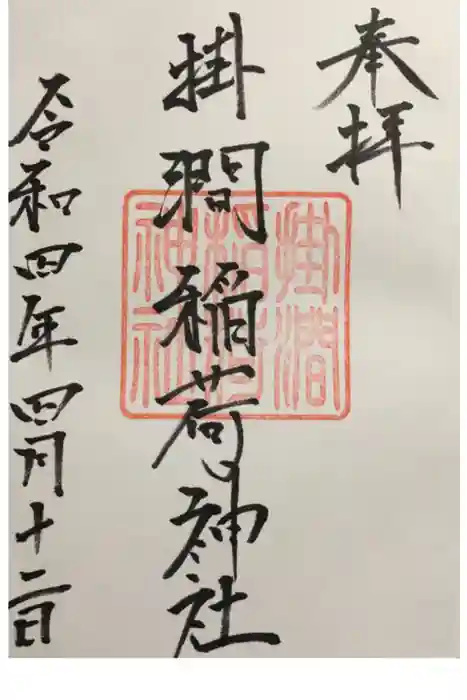 奉拝
掛澗稲荷神社
掛澗
稲荷
神社
令和四年四月十二日